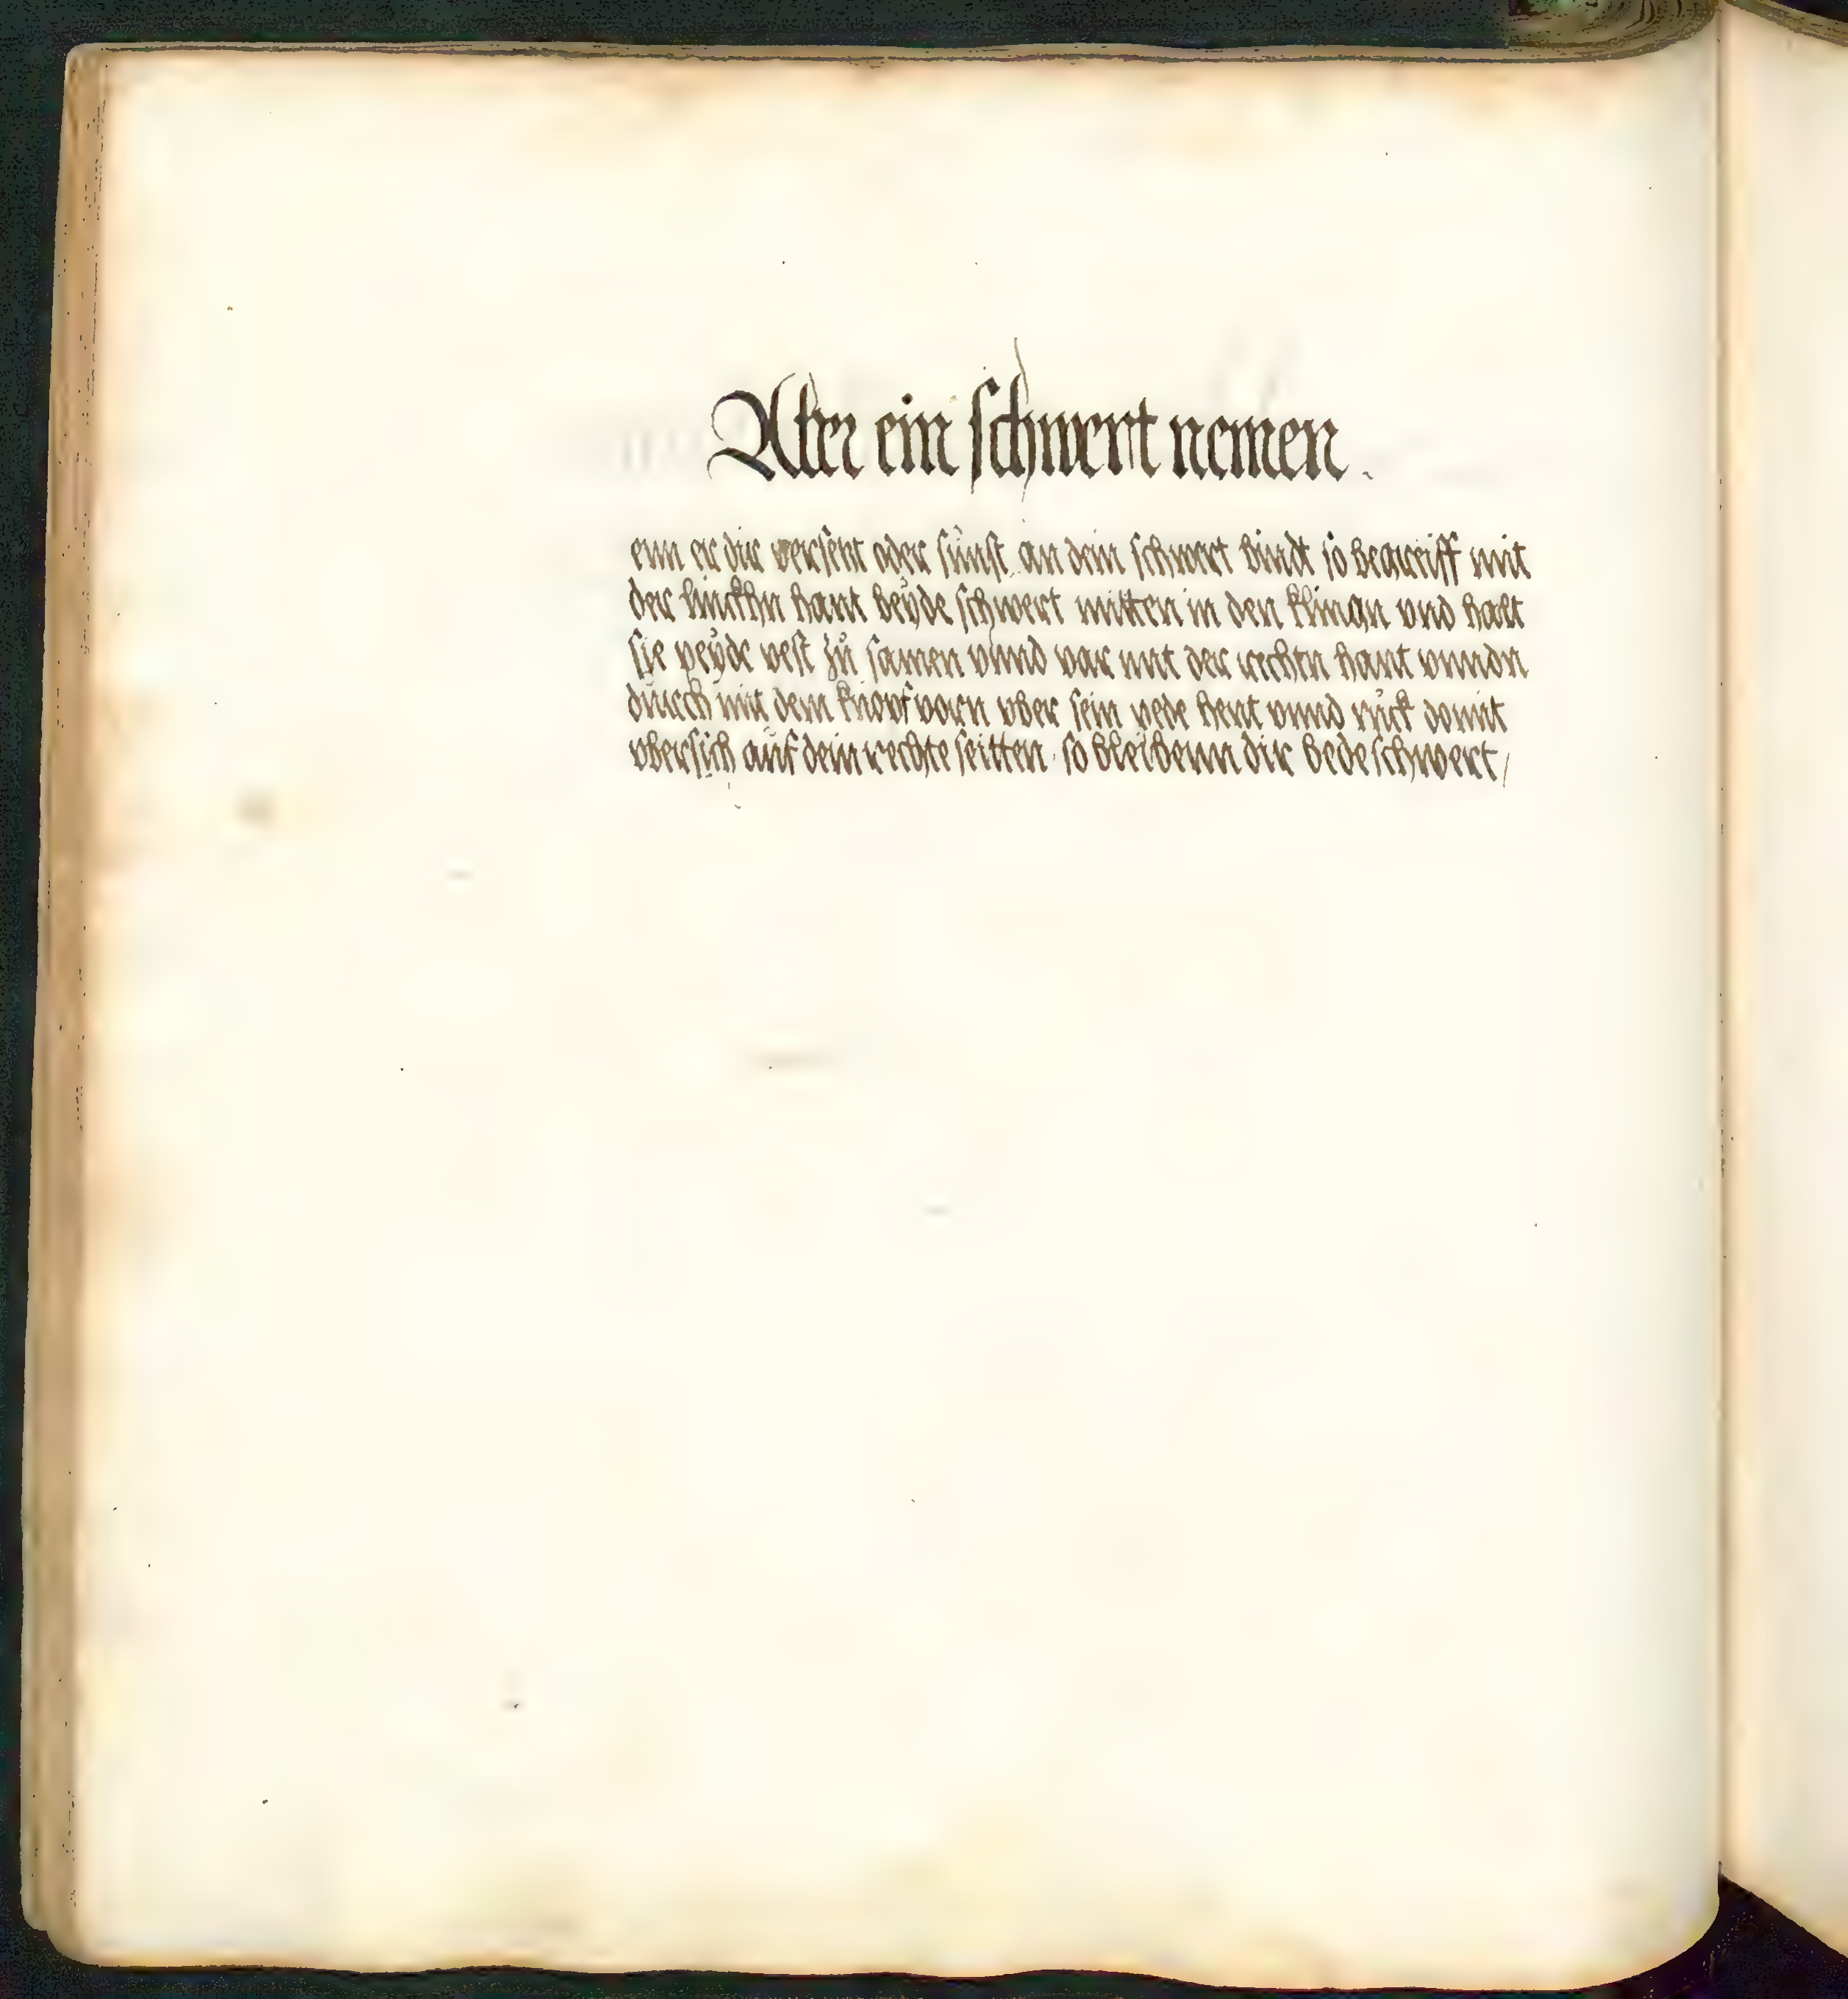 Aber ein schwert nemen.
enn er dir versetzt oder sünst an dein schwert bindt so begreiff mit
der lincken hant beÿde schwert mitten in den klingn vnd halt
sie peÿde vest zů samen vnnd var mit der rechtn hant vnndn
dürch mit dem knopf vorn vber sein pede hent vnnd rück domit
vbersich aůf dein rechte seitten · so bleibenn dir bede schwert /